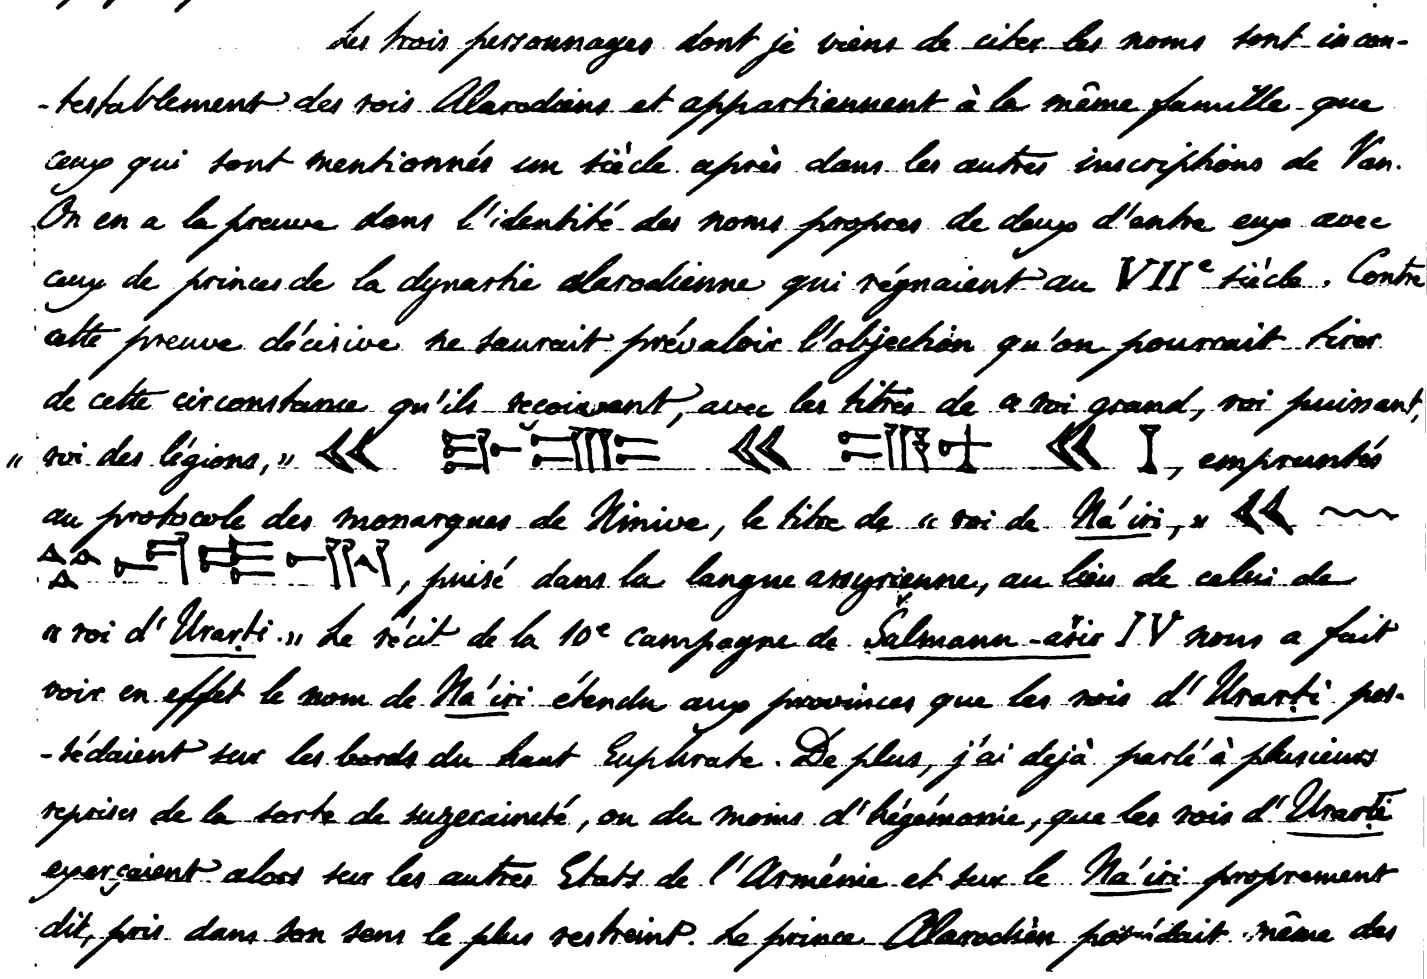 Les trois personnages dont je viens de citer les noms sont incon-
-testablement des rois Alarodiens et appartiennent à la même famille que
ceux qui sont mentionnés un siècle après dans les autres inscriptions de Van.
On en a la preuve dans l'identité des noms propres de deux d'entre eux avec
ceux de princes de la dynastie alarodienne qui régnaient au VIIe siècle. Contre
cette preuve décisive ne saurait prévaloir l'objection qu'on pourrait tirer
de cette circonstance qu'ils reçoivent, avec les titres de « roi grand, roi puissant,
« roi des légions, » , empruntés
au protocole des monarques de Ninive, le titre de « roi de Na'iri, »
, puisé dans la langue assyrienne, au lieu de celui de
« roi d'Urarṭi. » Le récit de la 10e campagne de Šalmann-ašir IV nous a fait
voir en effet le nom de Na'iri étendu aux provinces que les rois d'Urarṭi pos-
-sédaient sur les bords du haut Euphrate. De plus, j'ai déjà parlé à plusieurs
reprises de la sorte de suzeraineté, ou du moins d'hégémonie, que les rois d'Urarṭi
exerçaient alors sur les autres Etats de l'Arménie et sur le Na'iri proprement
dit, pris dans son sens le plus restreint. Le prince Alarodien possédait même des